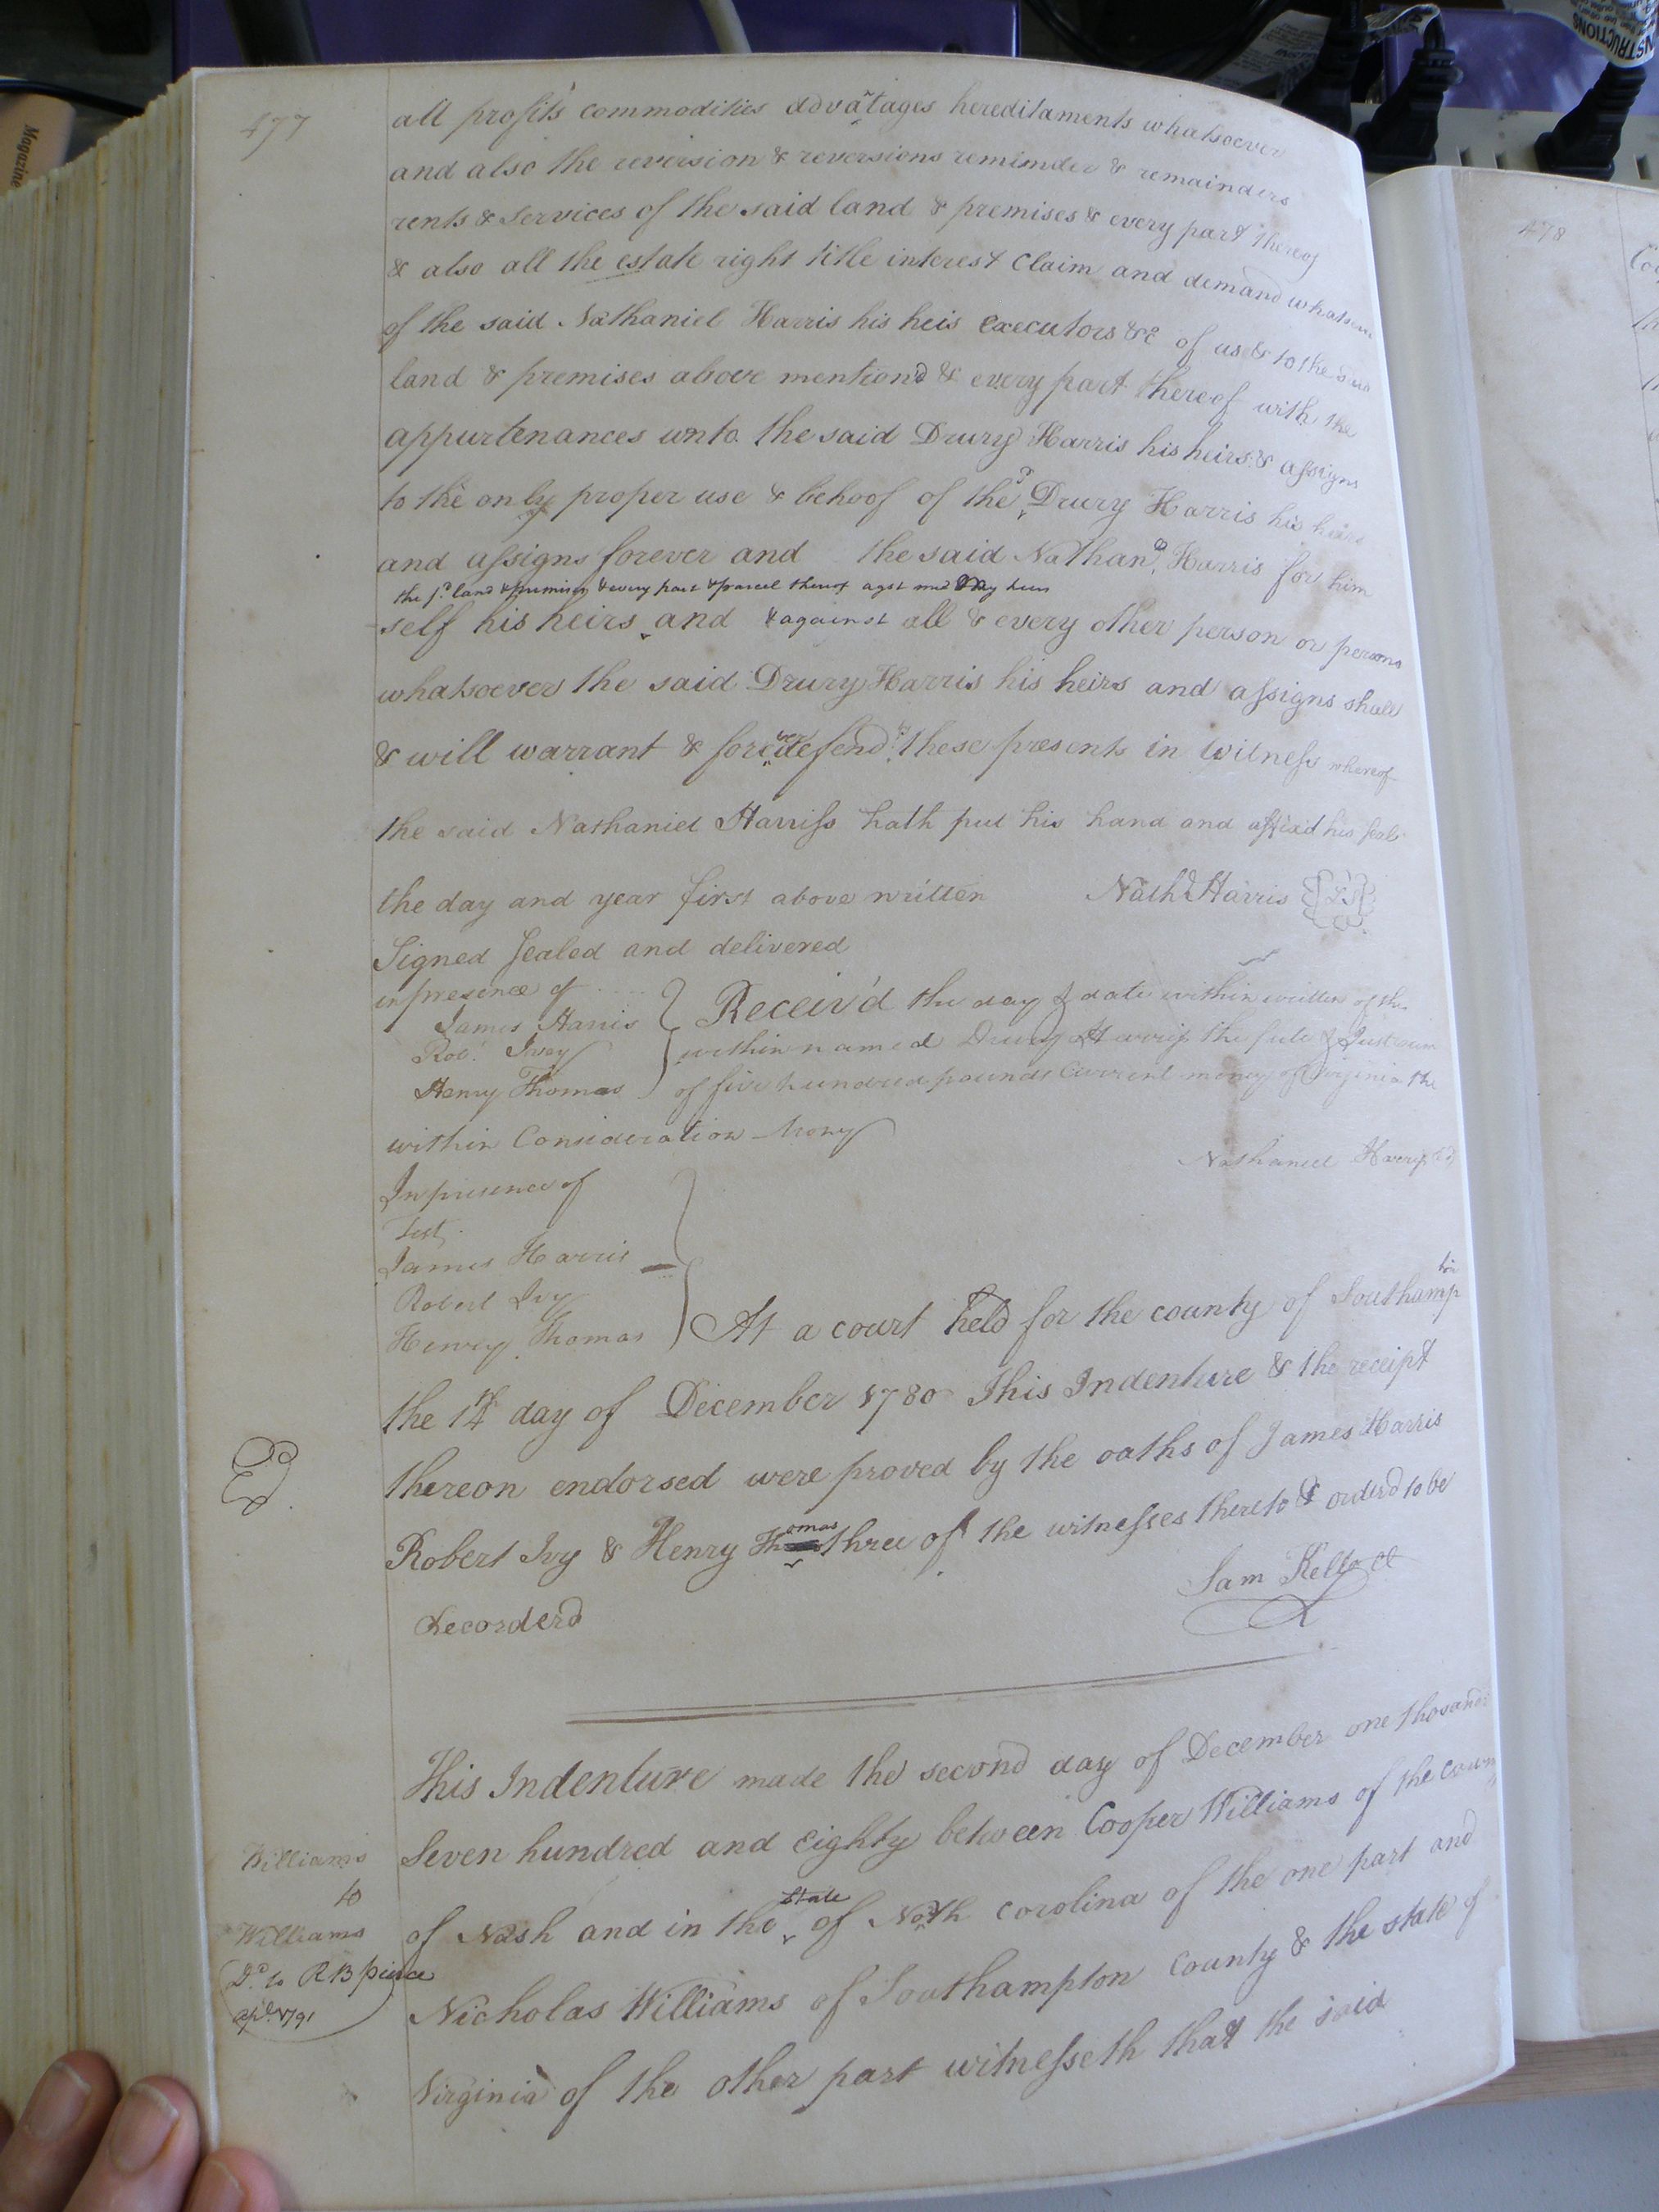 477
all profits commodities advãtages hereditaments whatsoever
and also the reversion & reversions remimder & remainders
rents & services of the said land & premises & every part thereof
& also all the estate right title interest Claim and demand whatsoever
of the said Nathaniel Harris his heis executors &c of us & to the said
land & premises above mentiond & every part thereof with the
appurtenances unto the said Drury Harris his heirs & assigns
to the only proper use & behoof of the sd Drury Harris his heirs
and assigns forever and the said Nathan. Harris for him
the sd. land & premises & every part & parcel thereof agst and
self his heirs and & against all & every other person or persons
whatsoever the said Drury Harris his heirs and assigns shall
& will warrant & forever defend these presents in Witness whereof
the said Nathaniel Harriss hath put his hand and affixd his seal
the day and year first above written Nathl Harris LS
Signed Sealed and delivered
in presence of
James Harris
Robt. Ivey
Henry Thomas
Receiv'd the day & date within written of the
within named Drury Harriss the full & Just sum
of five hundred pounds Current money of Virginia the
within Consideration Mony
Nathaniel Harriss
In presence of
Test.
James Harris
Robert Ivy
Henry Thomas
At a court held for the county of Southampton
the 14th day of December 1780 This Indenture & the receipt
thereon endorsed were proved by the oaths of James Harris
Robert Ivy & Henry Thomas three of the witnesses thereto & orderd to be
Recorderd
Sam Kello Cl
This Indenture made the second day of December one thosand
Seven hundred and Eighty between Cooper Williams of the coun
of Nash and in the state of North Corolina of the one part and
Nicholas Williams of Southampton County & the state of
Virginia of the other part witnesseth that the said
Williams
to
Williams
Dd. to R B peirce
apl. 1791
478
Magazine
INSTRUCTIONS